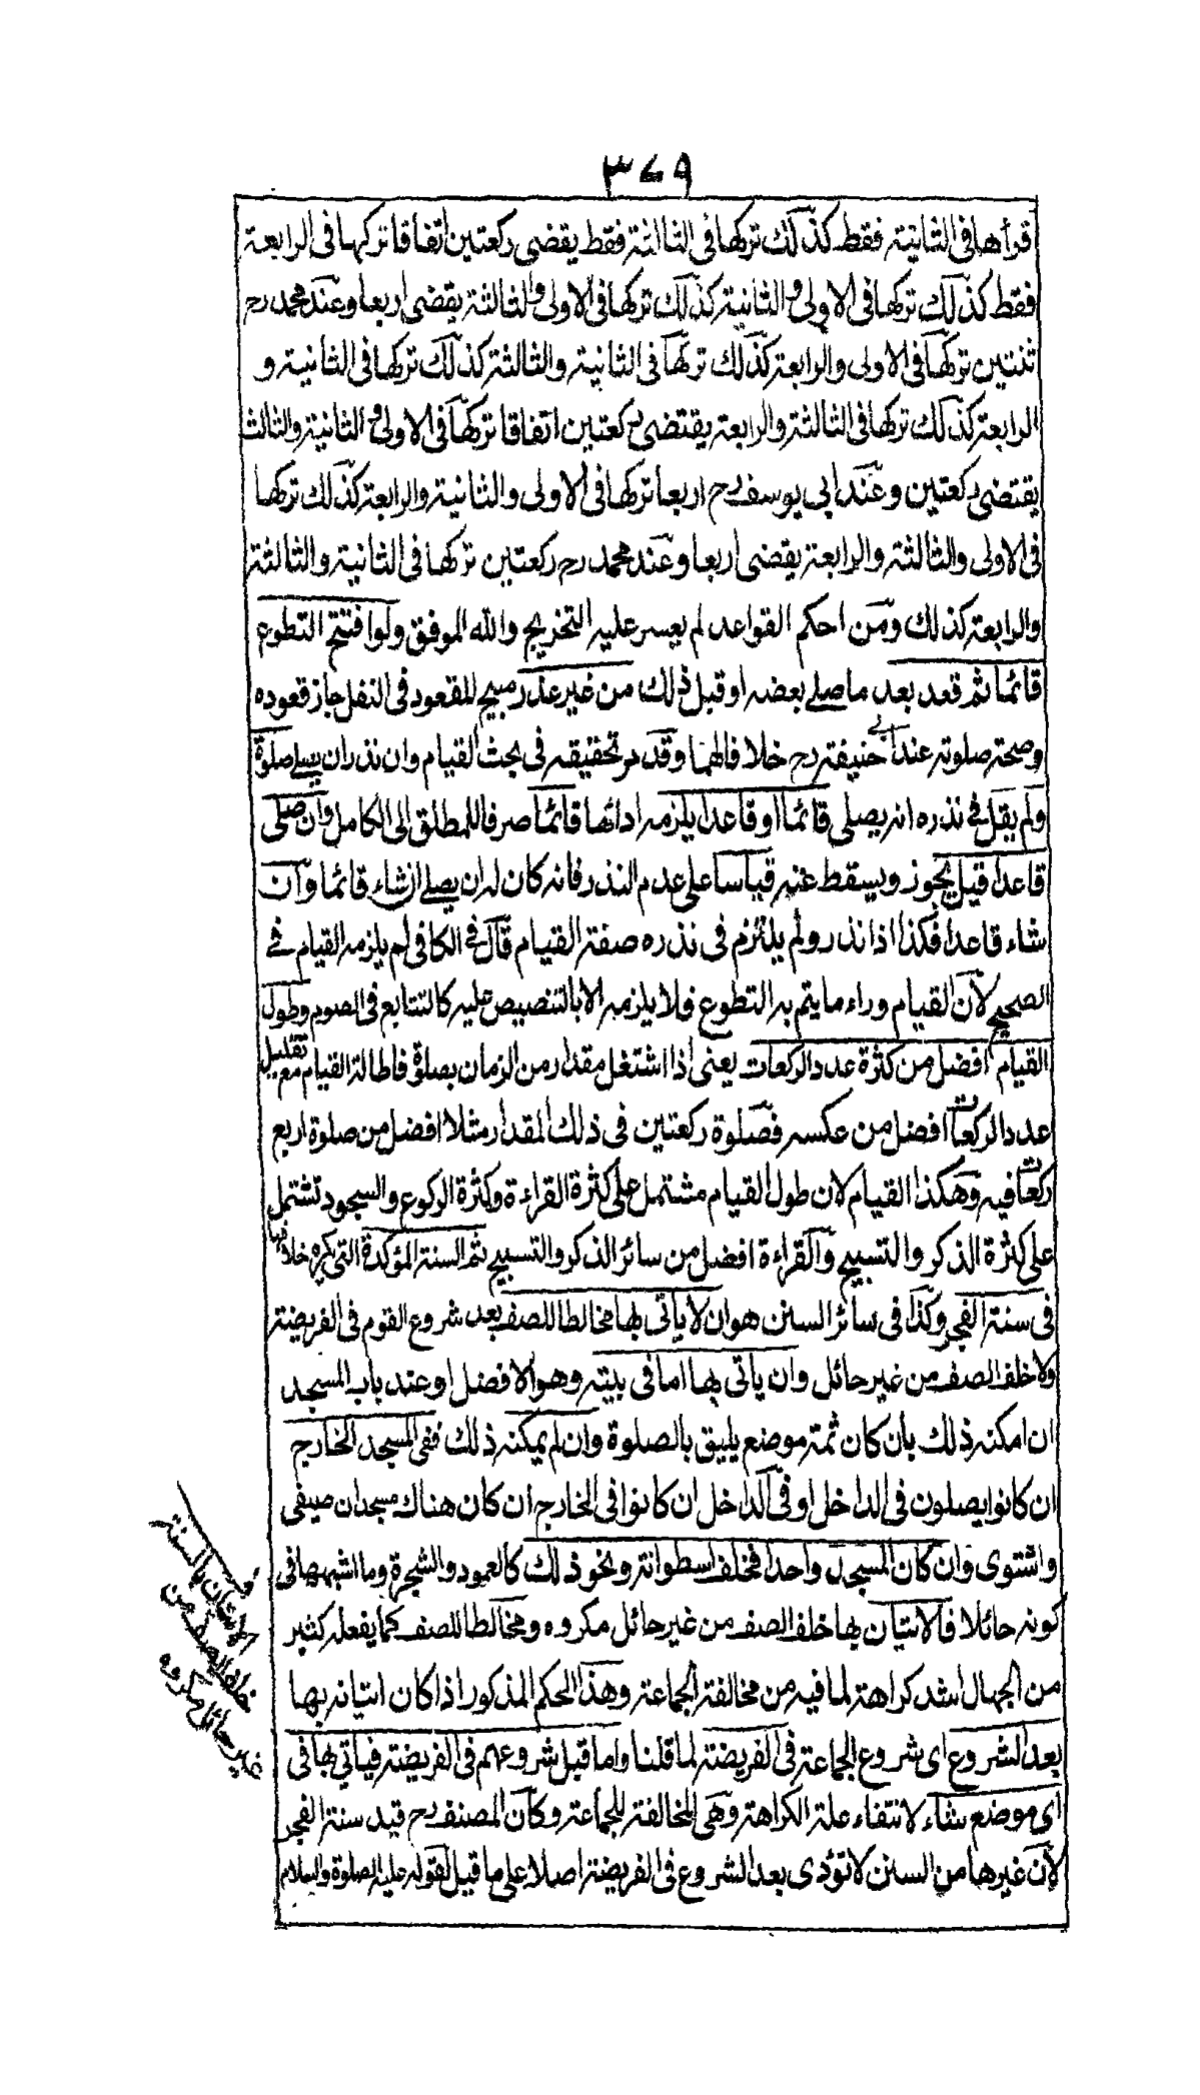 ٣٧٩
قرأها فى الثانية فقط كذلك تركها فى الثالثة فقط يقضى ركعتين اتفاقا تركها فى الرابعة
فقط كذلك تركها فى الاولى والثانية كذلك تركها فى الاولى والثالثة يقضى اربعا وعند محمد رح
ثنتين تركها فى الاولى والرابعة كذلك تركها فى الثانية والثالثة كذلك تركها فى الثانية و
الرابعة كذلك تركها فى الثالثة والرابعة يقتضى ركعتين اتفاقا تركها فى الاولى والثانية والثالث
يقتضى ركعتين وعند ابى يوسف رح اربعا تركها فى الاولى والثانية والرابعة كذلك تركها
فى الاولى والثالثة والرابعة يقضى اربعا وعند محمد رح ركعتين تركها فى الثانية والثالثة
والرابعة كذلك ومن احكم القواعد لم يعسر عليه التخريج والله الموفق ولو افتتح التطوع
قائما ثم قعد بعد ما صلے بعضه او قبل ذلك من غير عذر مبيح للقعود فى النفل جاز قعوده
وصحة صلوته عند ابى حنيفة رح خلافا لهما وقد مر تحقيقه فى بحث القيام وان نذر ان يصلے صلوة
ولم يقل فى نذره انه يصلى قائما او قاعدا يلزمه ادائها قائما صرفا للمطلق الى الكامل وان صلى
قاعدا قيل يجوز ويسقط عنه قياسا على عدم النذر فانه كان له ان يصلے ان شاء قائما وان
شاء قاعدا فكذا اذا نذر ولم يلتزم فى نذره صفة القيام قال فى الكافى لم يلزمه القيام فے
الصحيح لان القيام وراء ما يتم به التطوع فلا يلزمه الا بالتنصيص عليه كالتتابع فى الصوم وطول
القيام افضل من كثرة عدد الركعات يعنى اذا اشتغل مقدار من الزمان بصلوة فاطالة القيام مع تقليل
عدد الركعات افضل من عكسه فصلوة ركعتين فى ذلك المقدار مثلا افضل من صلوة اربع
ركعات فيه وهكذا القيام لان طول القيام مشتمل على كثرة القراءة وكثرة الركوع والسجود تشتمل
على كثرة الذكر والتسبيح والقراءة افضل من سائر الذكر والتسبيح ثم السنة المؤكدة التى يكره خلافها
فى سنة الفجر وكذا فى سائر السنن هو ان لا ياتى بها مخالطا للصف بعد شروع القوم فى الفريضة
ولا خلف الصف من غير حائل وان ياتى بها اما فى بيته وهو الافضل او عند باب المسجد
ان امكنه ذلك بان كان ثمة موضع يليق بالصلوة وان لم يمكنه ذلك ففى المسجد الخارج
ان كانوا يصلون فى الداخل او فى الداخل ان كانوا فى الخارج ان كان هناك مسجدان صيفى
واشتوى وان كان المسجد واحدا فخلف اسطوانة ونحو ذلك كالعمود والشجرة وما اشبهها فى
كونه حائلا فالاتيان بها خلف الصف من غير حائل مكروه ومخالطا للصف كما يفعله كثير
من الجهال اشد كراهة لما فيه من مخالفة الجماعة وهذا الحكم المذكور اذا كان اتيانه بها
بعد الشروع اى شروع الجماعة فى الفريضة لما قلنا واما قبل شروعهم فى الفريضة فياتى بها فى
اى موضع شاء لانتفاء علة الكراهة وهى المخالفة للجماعة وكان المصنف رح قيد سنة الفجر
لان غيرها من السنن لا تؤدى بعد الشروع فى الفريضة اصلا على ما قيل لقوله عليه الصلوة والسلام
الاتيان بالسنة
خلف الصف من
غير حائل مكروه